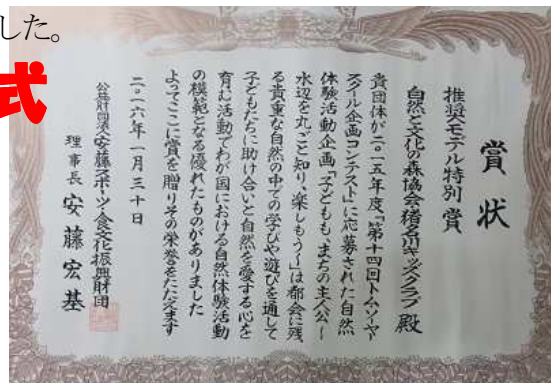 した。
式
賞状
推奨モデル特別賞
自然と文化の森協会・猪名川キッズクラブ殿
貴団体が二〇一五年度「第十四回トム・ソーヤ
スクール企画コンテスト」に応募された自然
体験活動企画「子どもも、まちの主人公〜
水辺を丸ごと知り、楽しもう〜」は都会に残
る貴重な自然の中での学びや遊びを通して
子どもたちに助け合いと自然を愛する心を
育む活動でわが国における自然体験活動
の模範となる優れたものがありました
よってここに賞を贈りその栄誉をたたえます
二〇一六年一月三十日
公益財団法人安藤スポーツ・食文化振興財団
理事長 安藤宏基